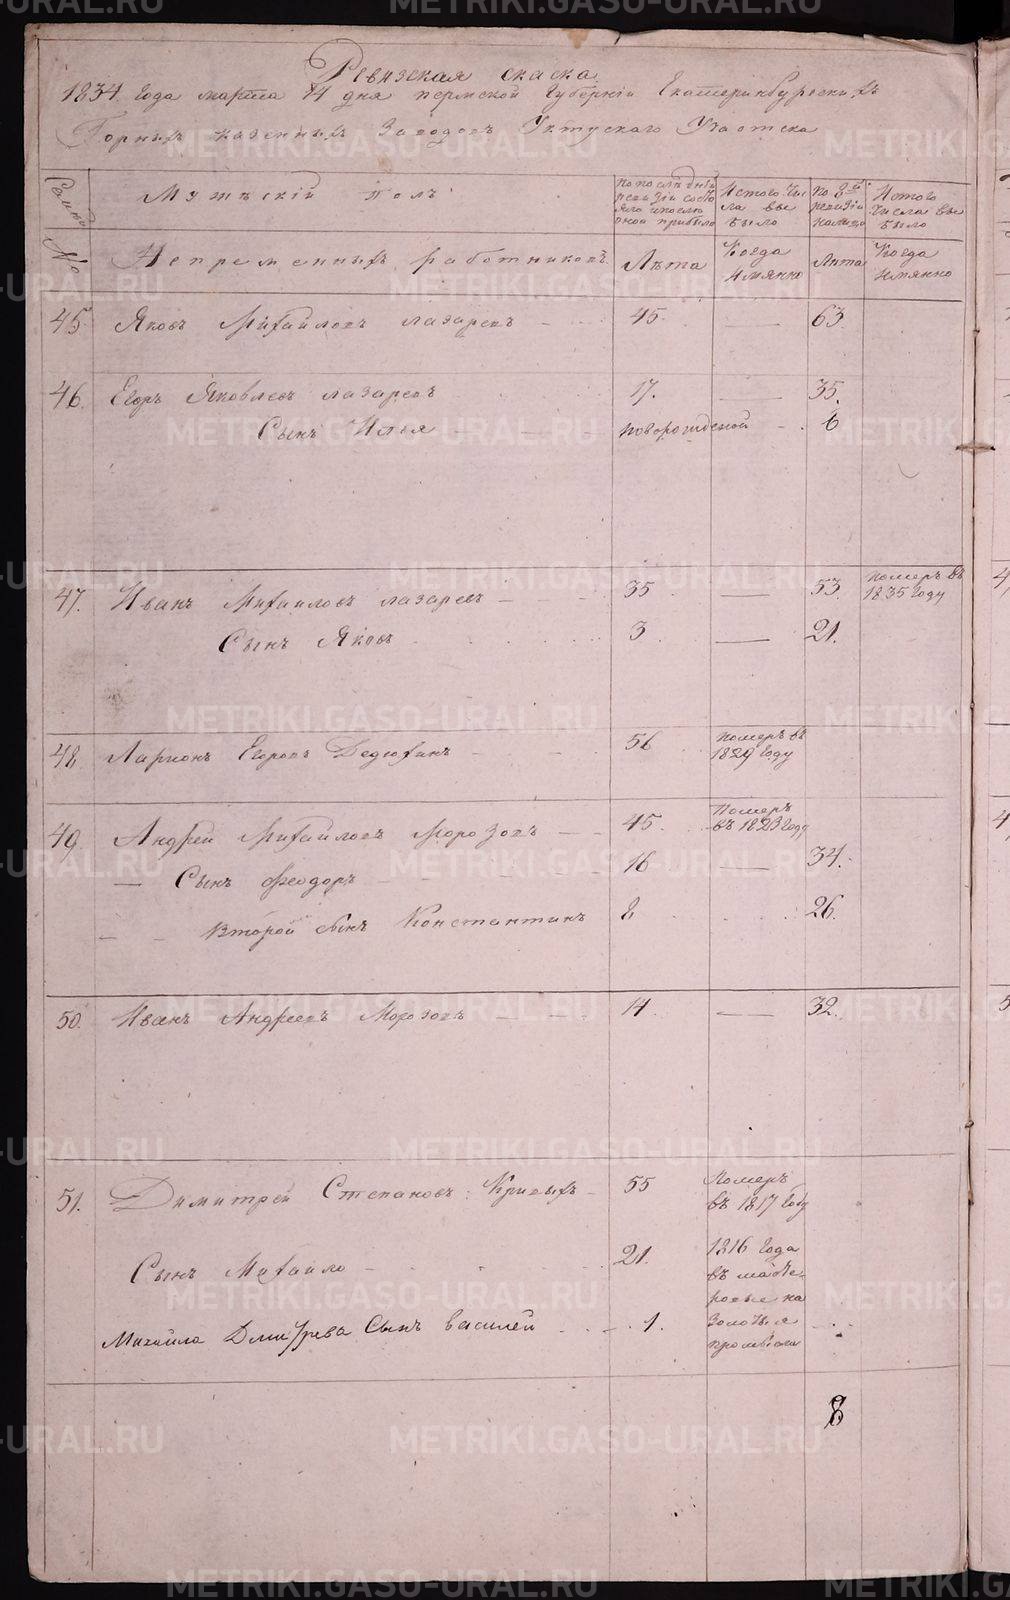 Ревизская скаска
1834 года марта 14 дня пермской губерніи Екатеринбурскихъ
Горныхъ казенныхъ Заводовъ Уктускаго Участка
Мужескій полъ
По последней ревизіи состояло и после оной прибыло
Изтого числа выбыло
По 8й ревизіи налицо
Изтого числа выбыло
№
Непременныхъ работниковъ
Лѣта
Когда имянно
Лѣта
Когда имянно
45. Яковъ Михайловъ лазаревъ 45. 63.
46. Егоръ Яковлевъ лазаревъ 17. 35.
Сынъ Илья новорожденой 6
47. Иванъ Михаиловъ лазаревъ 35 53. померъ въ 1835 году
Сынъ Яковъ 3 21.
48. Ларионъ Егоровъ Дедюхинъ 56 померъ въ 1829 году
49. Андрей Михайловъ Морозовъ 45. Померъ въ 1823 году
Сынъ Феодоръ 16 34.
Второй сынъ Константинъ 8 26.
50. Иванъ Андреевъ Морозовъ 14. 32.
51. Димитрей Степановъ Кривыхъ 55 Померъ въ 1817 году
Сынъ Михайло 21. 1816 года въ мастеровые на золотые промыслы
Михайла Дмитрева Сынъ василей 1.
8
METRIKI.GASO-URAL.RU